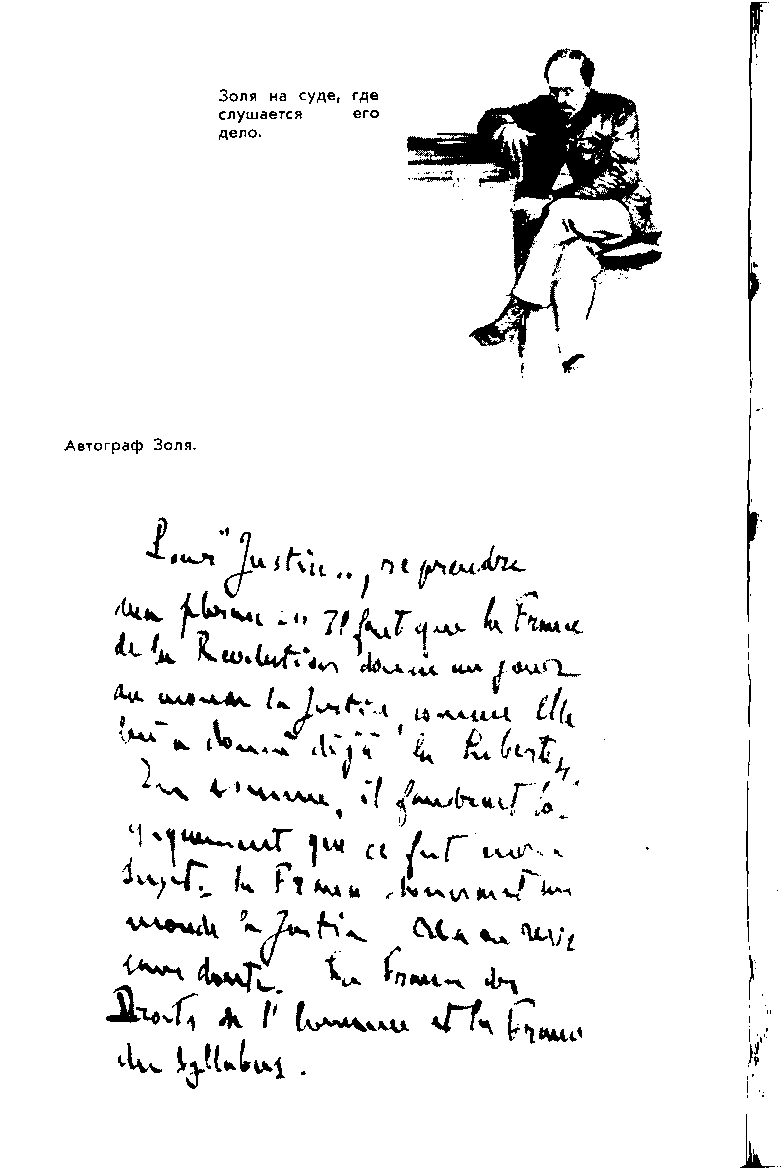 Золя на суде, где
слушается его
дело.
Автограф Золя.
Pour "Justice", reprendre
ma phrase : "Il faut que la France
de la Révolution donne un jour
au monde la Justice, comme elle
lui a donné déjà la Liberté".
En somme, il faudrait lo-
giquement que ce fut mon
sujet. la France donnant au
monde la Justice
sans doute. La France des
Droits de l'homme et la France
du Syllabus.